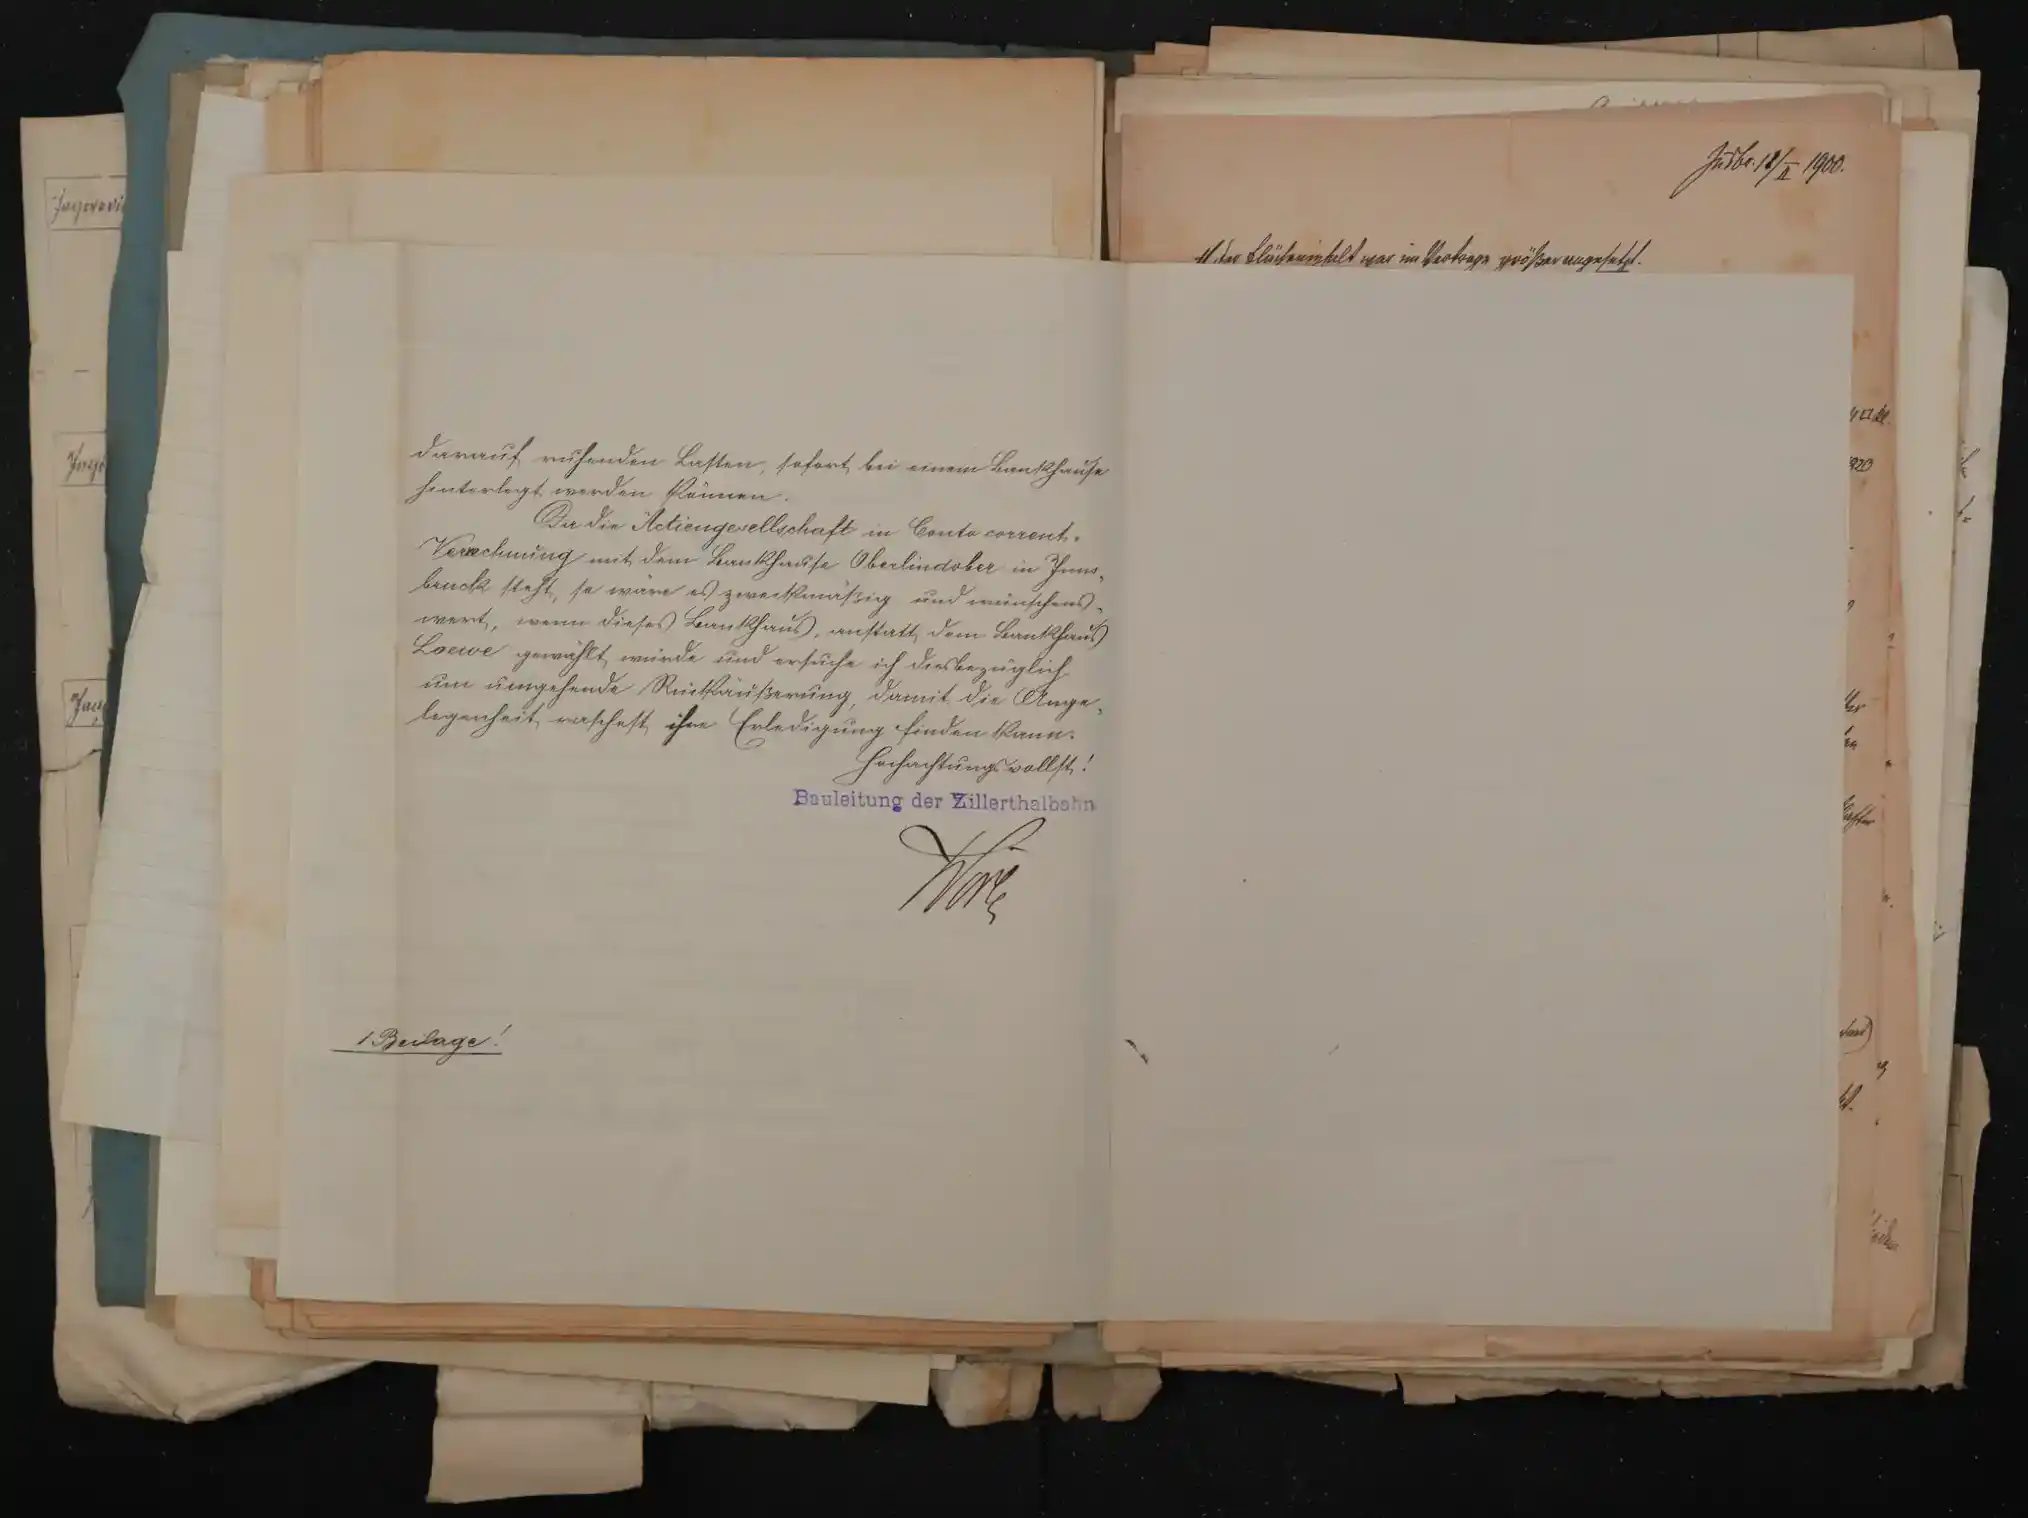 darauf ruhenden Lasten, sofort bei einem Bankhause
hinterlegt werden können.
Da die Actiengesellschaft in Conto corrent-
Verrechnung mit dem Bankhause Oberlindober in Inns-
bruck steht, so wäre es zweckmäßig und wünschens-
wert, wenn dieses Bankhaus, anstatt dem Bankhaus
Loewe gewählt würde und ersuche ich diesbezüglich
um umgehende Rückäußerung, damit die Ange-
legenheit raschest ihre Erledigung finden kann.
Hochachtungsvollst!
Bauleitung der Zillerthalbahn
1 Beilage!
18/II 1900.
1/ der Flächeninhalt war im Vertrage größer angesetzt.